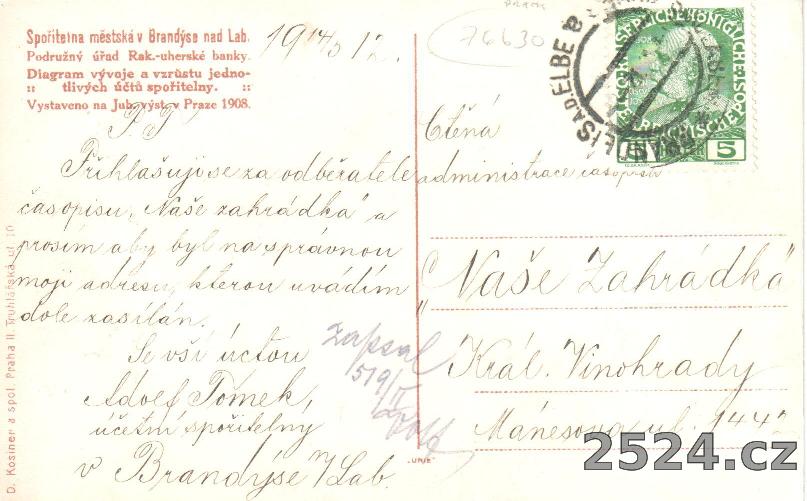 Spořitelna městská v Brandýse nad Lab.
Podružný úřad Rak.-uherské banky.
Diagram vývoje a vzrůstu jedno-
:: tlivých účtů spořitelny. ::
Vystaveno na Jub. výst. v Praze 1908.
19 14/3 12.
76630
BRANDEIS A.D. ELBE
5
P. T.
Přihlašuji se za odběratele
časopisu „Naše zahrádka" a
prosím aby byl na správnou
moji adresu, kterou uvádím
dole zasílán.
Se vší úctou
Adolf Tomek,
účetní spořitelny
v Brandýse n/Lab.
zapsal
Ctěná
administrace časopisu
„Naše Zahrádka"
Král. Vinohrady
Mánesova ul. 1442
D. Kosiner a spol. Praha II. Truhlářská ul. 10
„UNIE"
2524.cz